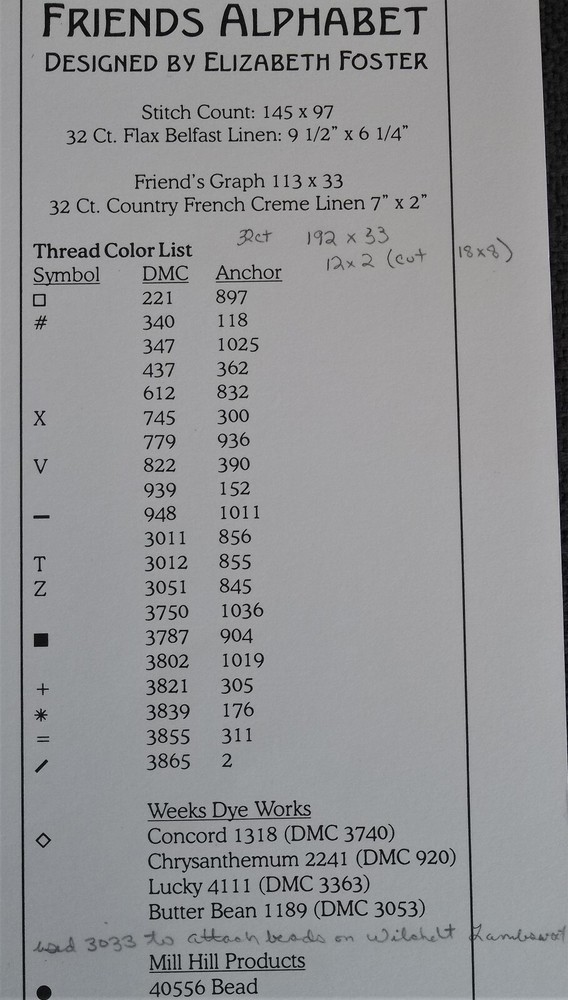 FRIENDS ALPHABET
DESIGNED BY ELIZABETH FOSTER
Stitch Count: 145 x 97
32 Ct. Flax Belfast Linen: 9 1/2" x 6 1/4"
Friend's Graph 113 x 33
32 Ct. Country French Creme Linen 7" x 2"
32ct 192 x 33
12x2 (cut 18x8)
Thread Color List
Symbol DMC Anchor
□ 221 897
# 340 118
347 1025
437 362
612 832
X 745 300
779 936
V 822 390
939 152
— 948 1011
3011 856
T 3012 855
Z 3051 845
3750 1036
■ 3787 904
3802 1019
+ 3821 305
* 3839 176
= 3855 311
/ 3865 2
Weeks Dye Works
◇ Concord 1318 (DMC 3740)
Chrysanthemum 2241 (DMC 920)
Lucky 4111 (DMC 3363)
Butter Bean 1189 (DMC 3053)
used 3033 to attach beads on Wichelt
Mill Hill Products
● 40556 Bead